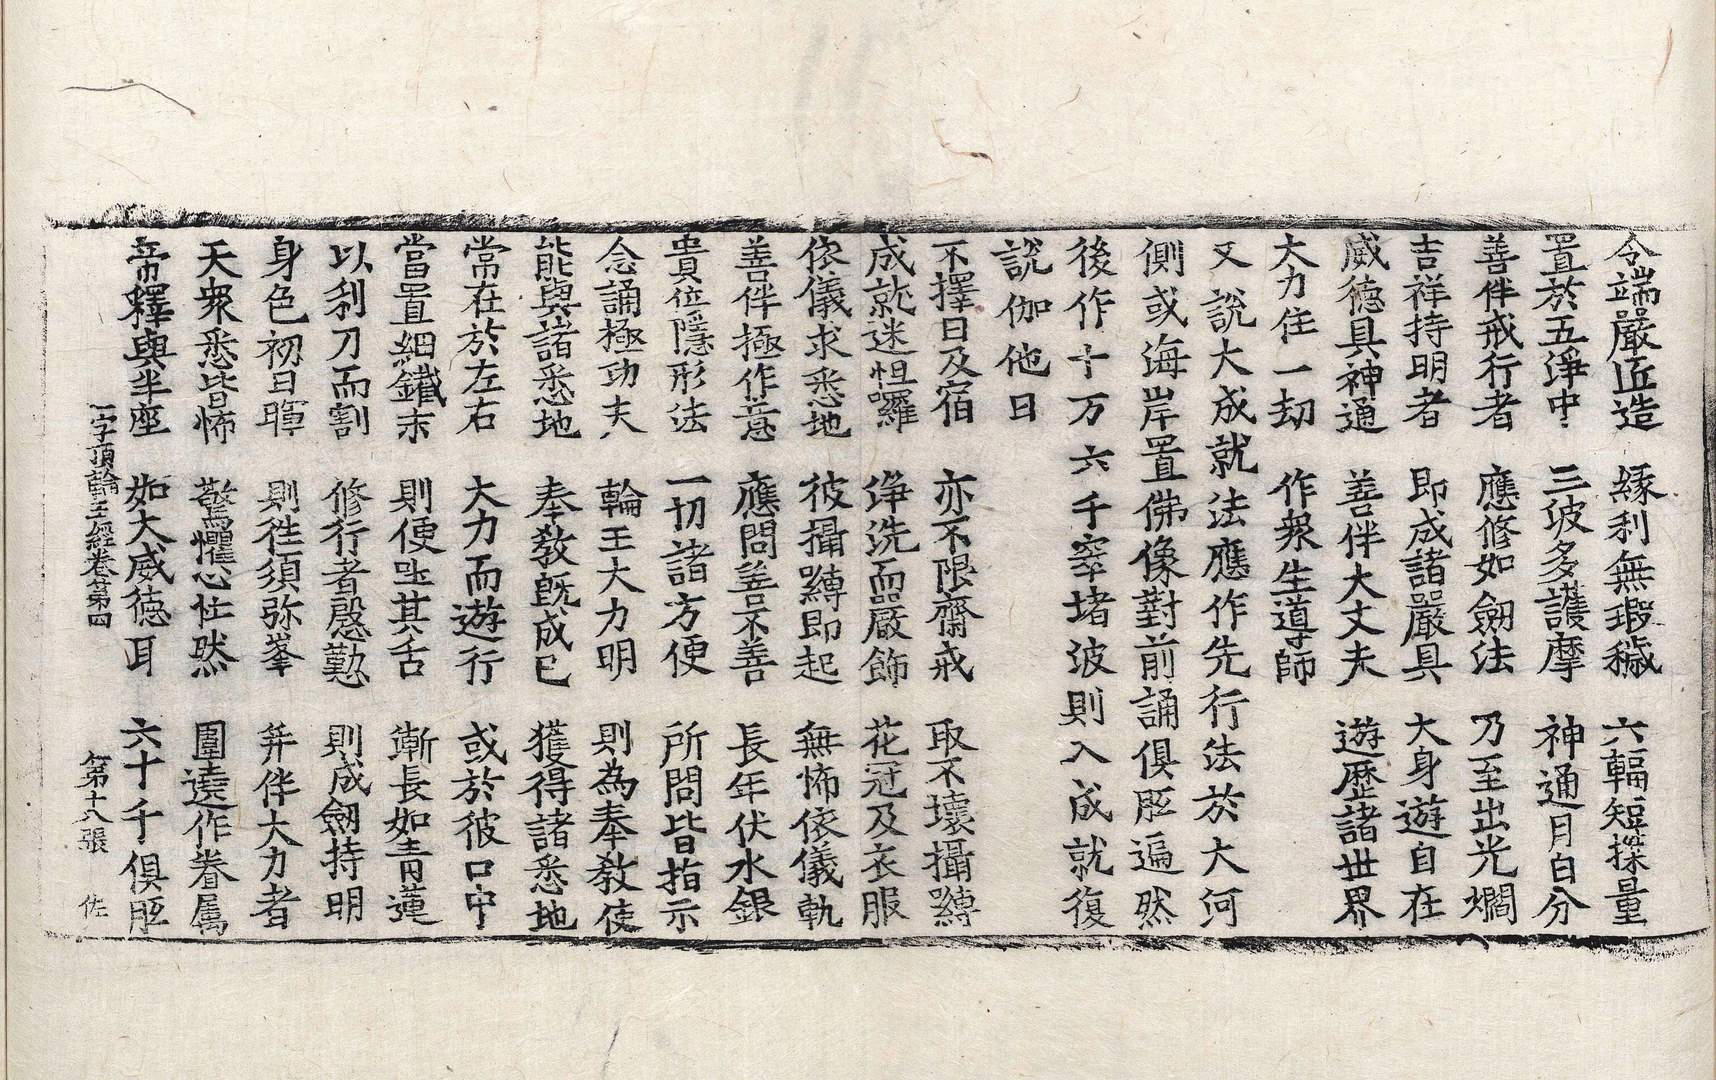 令端嚴匠造 緣利無瑕穢 六輻短揬量
置於五淨中 三波多護摩 神通月白分
善伴戒行者 應修如劒法 乃至出光爓
吉祥持明者 即成諸嚴具 大身遊自在
威德具神通 善伴大丈夫 遊歷諸世界
大力住一劫 作衆生導師
又說大成就法應作先行法於大河
側或海岸置佛像對前誦俱胝遍然
後作十万六千窣堵波則入成就復
說伽他曰
不擇日及宿 亦不限齋戒 取不壞攝嚩
成就迷怛囉 淨洗而嚴飾 花冠及衣服
依儀求悉地 彼攝嚩即起 無怖依儀軌
善伴極作意 應問善不善 長年伏水銀
貴位隱形法 一切諸方便 所問皆指示
念誦極功夫 輪王大力明 則為奉教使
能與諸悉地 奉教旣成已 獲得諸悉地
常在於左右 大力而遊行 或於彼口中
當置細鐵末 則便出其舌 漸長如青蓮
以利刀而割 修行者慇懃 則成劒持明
身色初日暉 則往須弥峯 并伴大力者
天衆悉皆怖 驚懼心怯然 圍遶作眷属
帝釋與半座 如大威德耳 六十千俱胝
一字頂輪王經卷第四 第十八張 佐